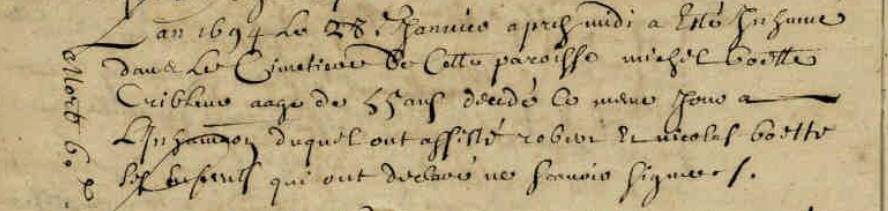 Lan 1694 Le 28 Janvier apres midi a Esté Inhumé
dans Le Cimetiere de Cette paroisse michel boette
Cribleur aagé de 55 ans decedé le meme Jour a
L Inhumaon duquel ont assisté robert Et nicolas boette
ses qui ont declaré ne scavoir signer /.
Mort 60